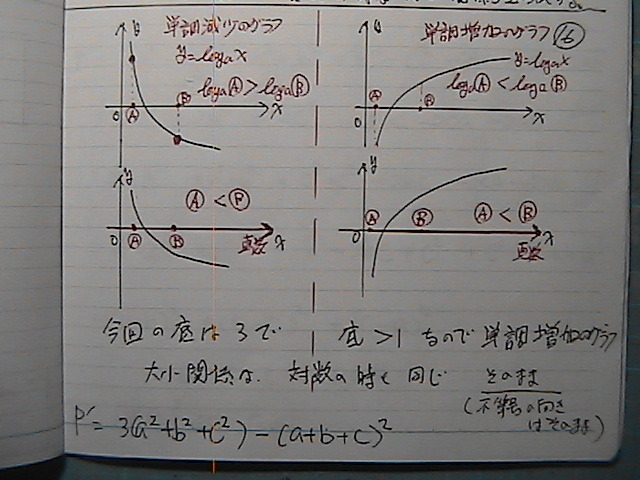 単調減少のグラフ
y=logax
logaⒶ>logaⒷ
y
0
Ⓐ
Ⓑ
x
単調増加のグラフ
⑯
y=logax
logaⒶ<logaⒷ
y
0
Ⓐ
Ⓑ
x
y
Ⓐ<Ⓟ
0
Ⓐ
Ⓑ
x
真数
y
Ⓐ
Ⓑ
Ⓐ<Ⓑ
0
x
真数
今回の底は3で
底>1なので単調増加のグラフ
大小関係は、対数の時と同じ そのまま
(不等号の向き
はそのまま)
P'=3(a²+b²+c²)-(a+b+c)²